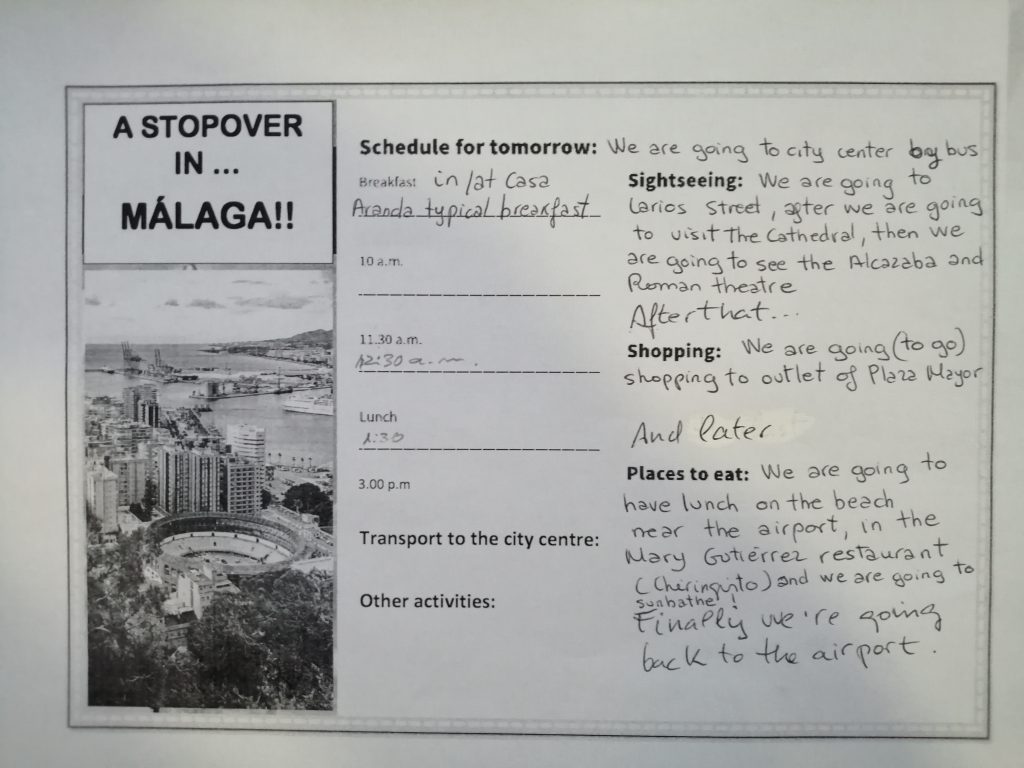 A STOPOVER
IN ...
MÁLAGA!!
Schedule for tomorrow: We are going to city center by bus
Breakfast in/at Casa
Aranda typical breakfast
10 a.m.
11.30 a.m.
12:30 a.m.
Lunch
1:30
3.00 p.m
Transport to the city centre:
Other activities:
Sightseeing: We are going to
Larios Street, after we are going
to visit The Cathedral, then we
are going to see the Alcazaba and
Roman theatre
After that...
Shopping: We are going (to go)
shopping to outlet of Plaza Mayor
And later
Places to eat: We are going to
have lunch on the beach
near the airport, in the
Mary Gutiérrez restaurant
(Chiringuito) and we are going to
sunbathe!
Finally we're going
back to the airport.